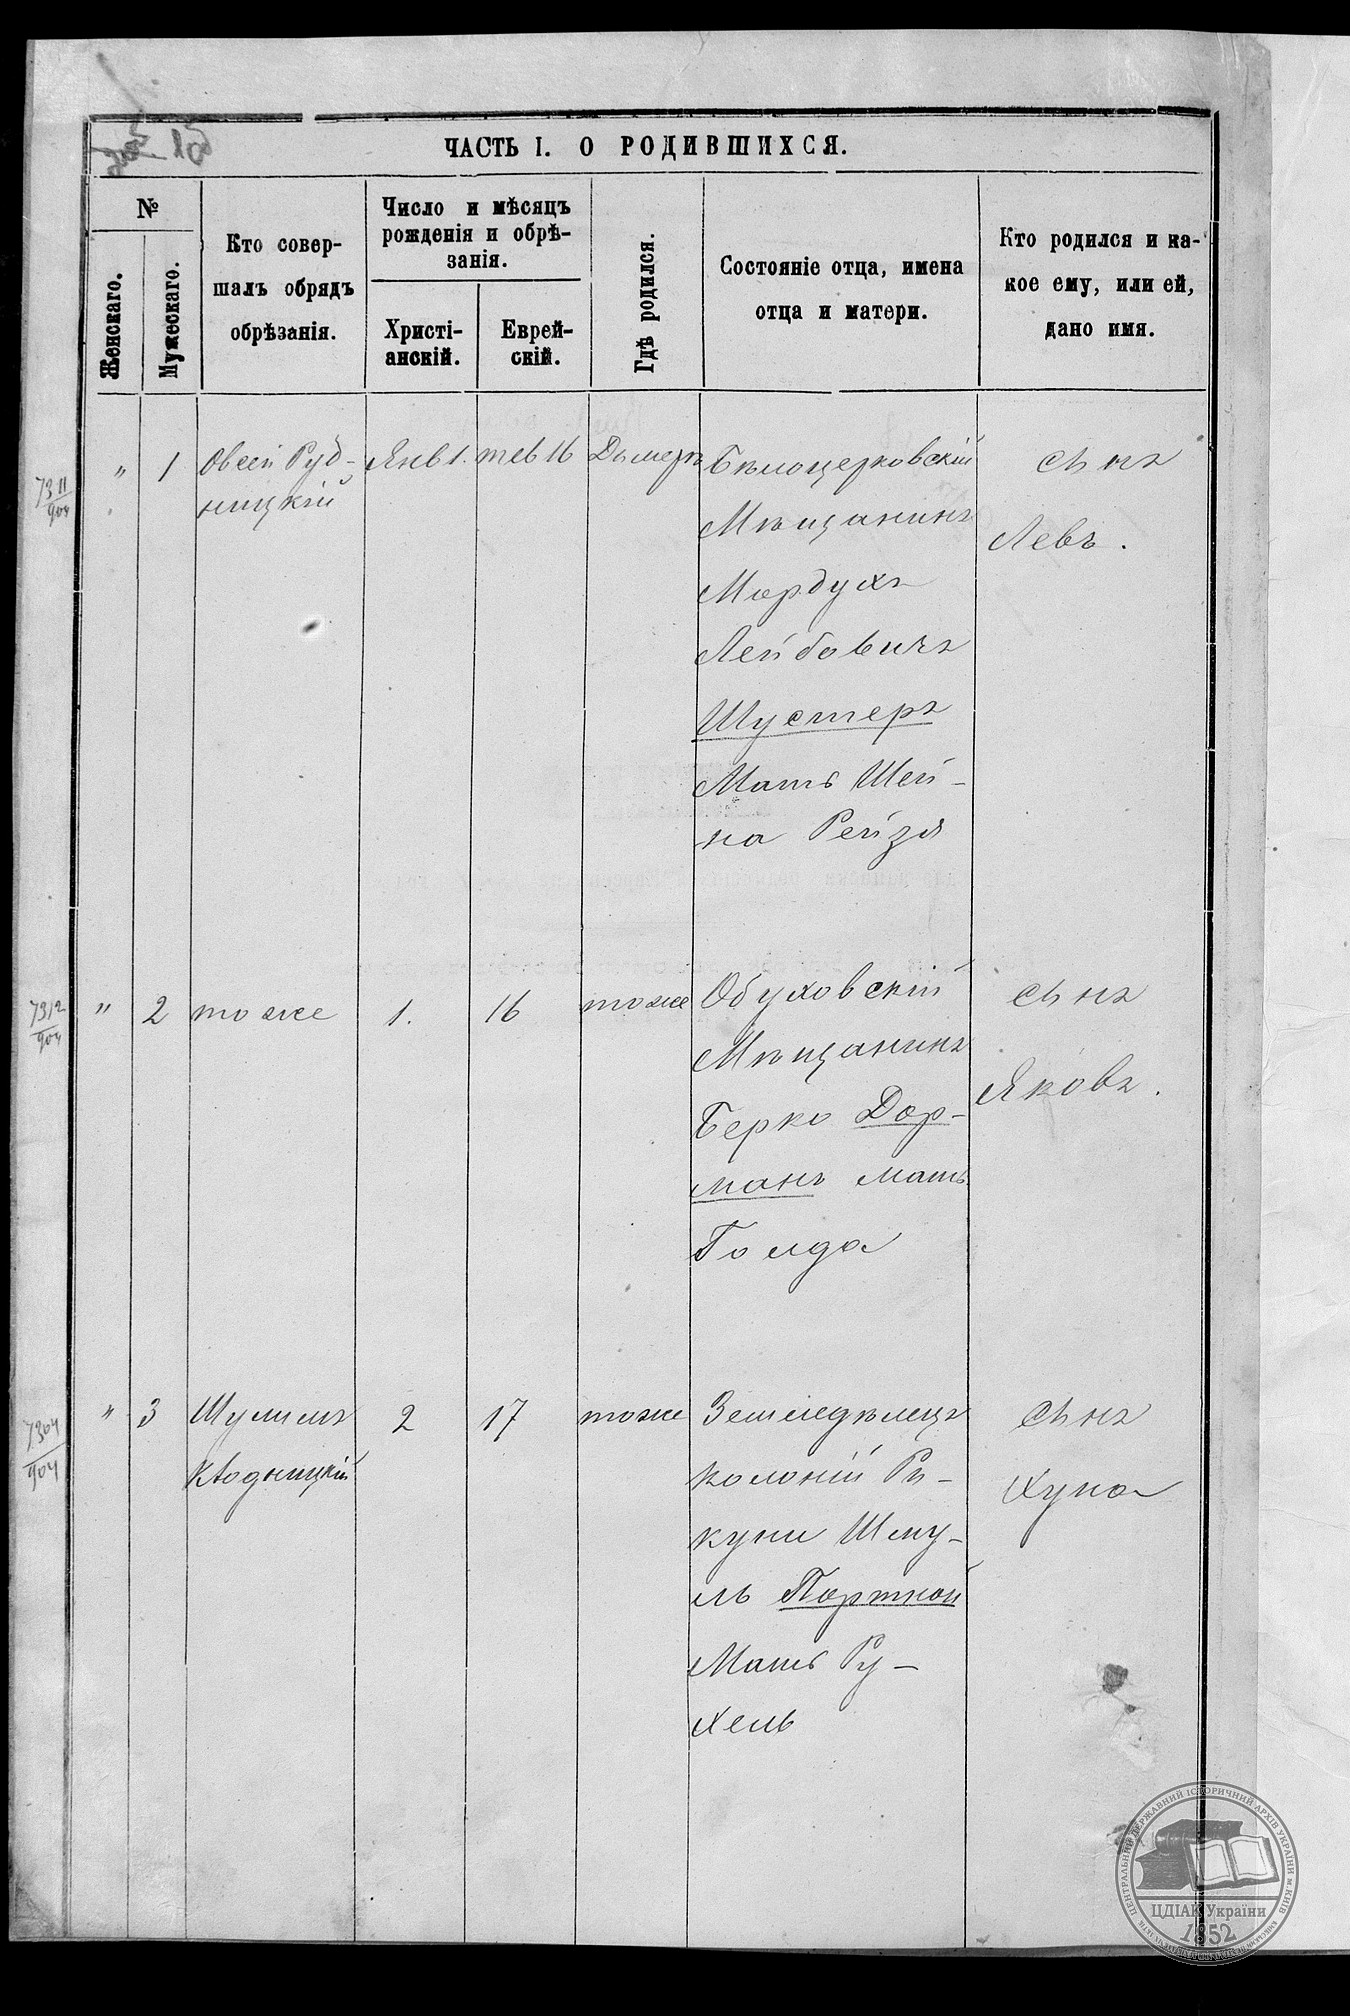 105
ЧАСТЬ I. О РОДИВШИХСЯ.
№
Женскаго.
Мужескаго.
Кто совер-
шалъ обрядъ
обрѣзанія.
Число и мѣсяцъ
рожденія и обрѣ-
занія.
Христі-
анскій.
Еврей-
скій.
Гдѣ родился.
Состояніе отца, имена
отца и матери.
Кто родился и ка-
кое ему, или ей,
дано имя.
7311
904
" 1 Овсей Руд-
ницкій
Янв 1. тев 16 Дымеръ
Бѣлоцерковскій
Мѣщанинъ
Мордухъ
Лейбовичъ
Шустеръ
Мать Шей-
на Рейзя
сынъ
Левъ.
7312
904
" 2 тоже 1. 16 тоже
Обуховскій
Мѣщанинъ
Берко Дор-
манъ мать
Голда
сынъ
Яковъ.
7304
904
" 3 Шулимъ
2 17 тоже
Земледѣлецъ
колоній Ры-
куни Шму-
ль Портной
Мать Ру-
хель
сынъ
Хуна
ЦЕНТРАЛЬНИЙ ДЕРЖАВНИЙ ІСТОРИЧНИЙ АРХІВ УКРАЇНИ м.КИЇВ
ЦДІАК України
1852